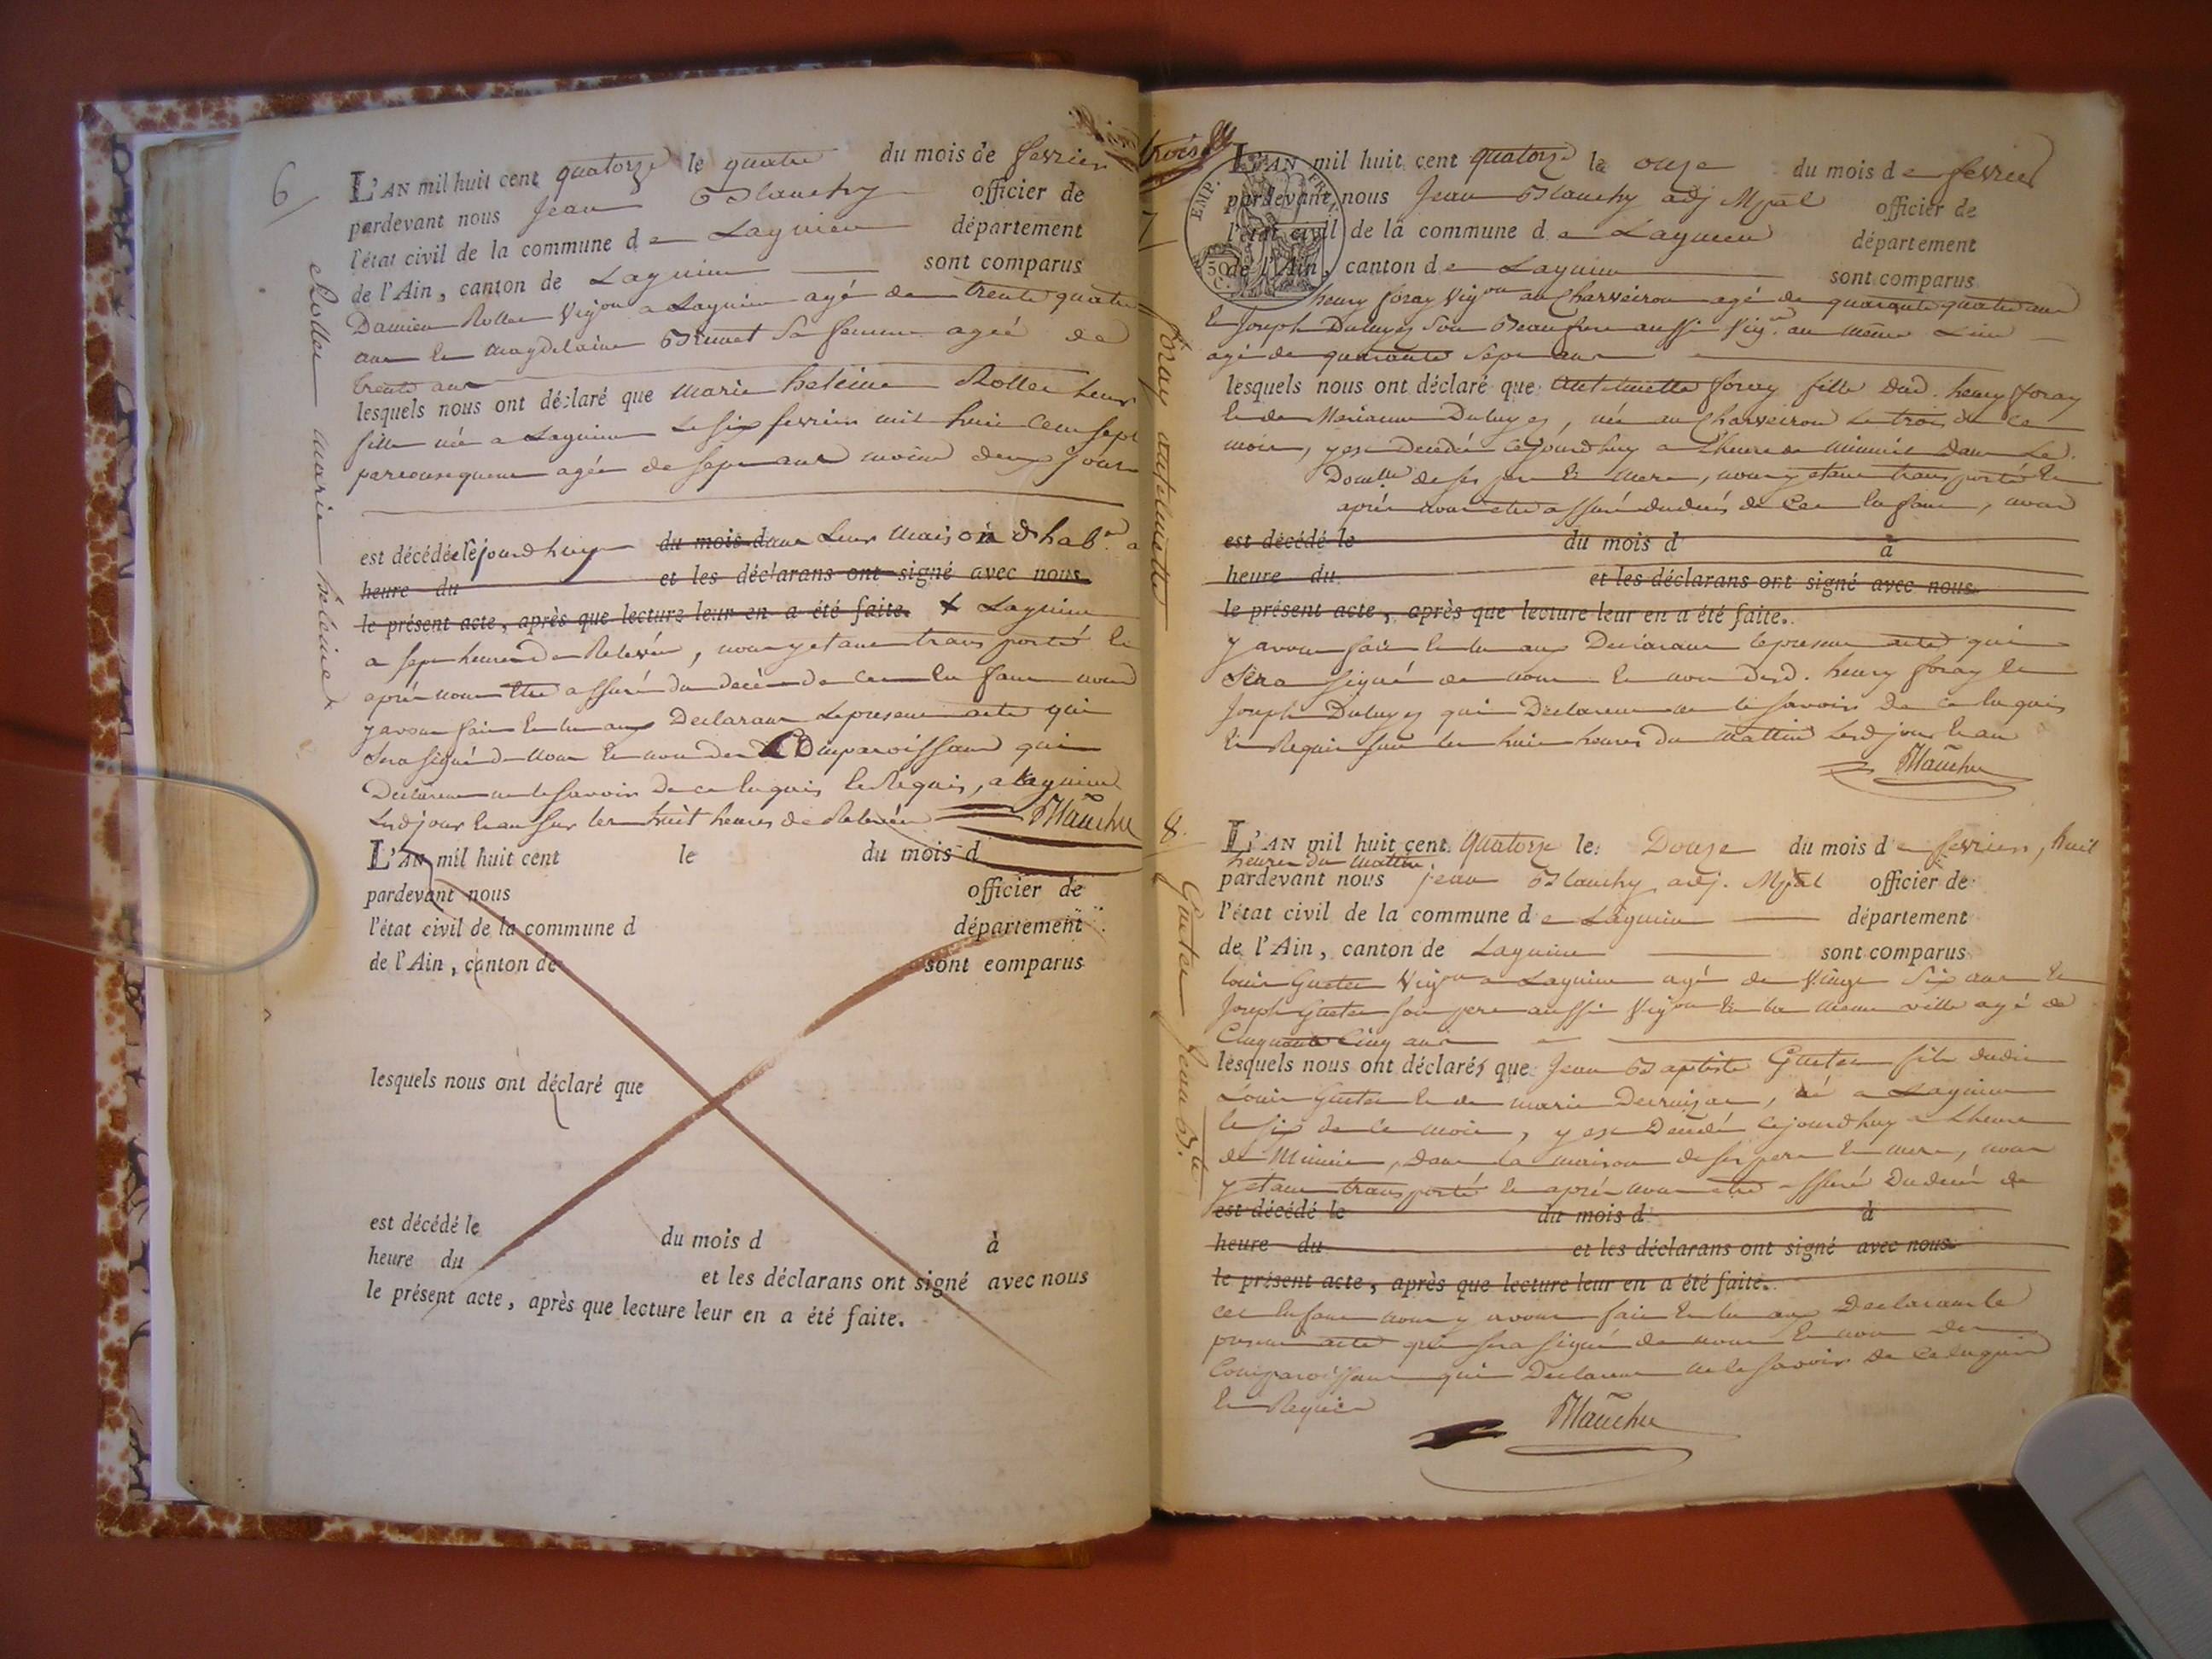 6
Rollet marie héleine
L'AN mil huit cent quatorze le quatre du mois de fevrier
pardevant nous Jean Blanchy officier de
l'état civil de la commune de Lagnieu département
de l'Ain, canton de Lagnieu sont comparus
Damien Rollet Vigon a Lagnieu agé de trente quatre
ans et magdelaine Brunet Sa femme agée de
trente ans
lesquels nous ont déclaré que marie heleine Rollet leur
fille née a Lagnieu le six fevrier mil huit cent sept
parconsequent agée de sept ans moins deux jours
est décédée cejourdhuy du mois dans Leur maison dhabon a
heure du et les déclarans ont signé avec nous
le présent acte, après que lecture leur en a été faite. Lagnieu
a sept heures de Relevée, nous y etant transporté et
aprés nous etre assuré du decés de cet enfant nous
y avons fait et lu aux Declarans le present acte qui
Sera signé de nous et non des Comparoissans qui
Declarent ne le savoir de ce enquis et Requis, a lagnieu
Lesd jour et an sur les huit heures de Relevée Blanchy
L'AN mil huit cent le du mois d
pardevant nous officier de
l'état civil de la commune d département
de l'Ain, canton de sont comparus
lesquels nous ont déclaré que
est décédé le du mois d à
heure du et les déclarans ont signé avec nous
le présent acte, après que lecture leur en a été faite.
trois
EMP. FR.
50 C.
7
foray antoinette
L'AN mil huit cent quatorze le onze du mois de fevrier
pardevant nous Jean Blanchy adj Mpal officier de
l'état civil de la commune de Lagnieu département
de l'Ain, canton de Lagnieu sont comparus
henry foray Vigon au Charveiron agé de quarante quatre ans
et Joseph son Beaufrere aussi Vign au même Lieu
agé de quarante Sept ans
lesquels nous ont déclaré que antoinette foray fille dud. henry foray
et de Merianne, née au Charveiron le trois de ce
mois, y est Decedée cejourdhuy a l'heure de minuit dans le
Domlle de ses pere et mere, nous y etant transporté et
aprés nous etre assuré du decés de cet enfant, nous
est décédé le du mois d à
heure du et les déclarans ont signé avec nous
le présent acte, après que lecture leur en a été faite.
y avons fait et lu aux Declarans le present acte qui
Sera signé de nous et non desd. henry foray et
Joseph qui Declarent ne le savoir de ce enquis
et Requis sur les huit heures du mattin lesd jour et an
Blanchy
8
Guetet Jean Bte
L'AN mil huit cent quatorze le Douze du mois de fevrier, huit
heures du mattin
pardevant nous jean Blanchy adj. Mpal officier de
l'état civil de la commune de Lagnieu département
de l'Ain, canton de Lagnieu sont comparus
louis Guetet Vigon a Lagnieu agé de Vingt Six ans et
Joseph Guetet son pere aussi Vigon en la meme ville agé de
Cinquante Cinq ans
lesquels nous ont déclarés que Jean Baptiste Guetet fils dudit
Louis Guetet et de marie, né a Lagnieu
le six de ce mois, y est Decedé cejourdhuy a l'heure
de Minuit, dans la maison de ses pere et mere, nous
y etant transporté et aprés nous etre assuré du decés de
est décédé le du mois d à
heure du et les déclarans ont signé avec nous
le présent acte, après que lecture leur en a été faite.
cet enfant nous y avons fait et lu aux Declarans le
present acte qui sera signé de nous et non des
Comparoissans qui Declarent ne le savoir de ce enquis
et Requis
Blanchy